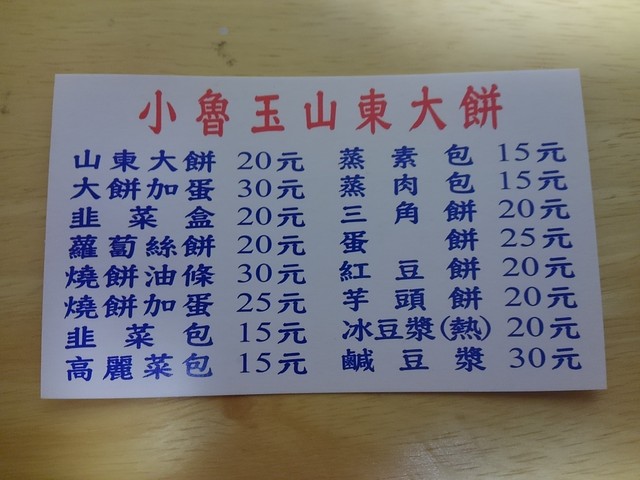 小魯玉山東大餅
山東大餅 20元
大餅加蛋 30元
韭菜盒 20元
蘿蔔絲餅 20元
燒餅油條 30元
燒餅加蛋 25元
韭菜包 15元
高麗菜包 15元
蒸素包 15元
蒸肉包 15元
三角餅 20元
蛋餅 25元
紅豆餅 20元
芋頭餅 20元
冰豆漿(熱) 20元
鹹豆漿 30元